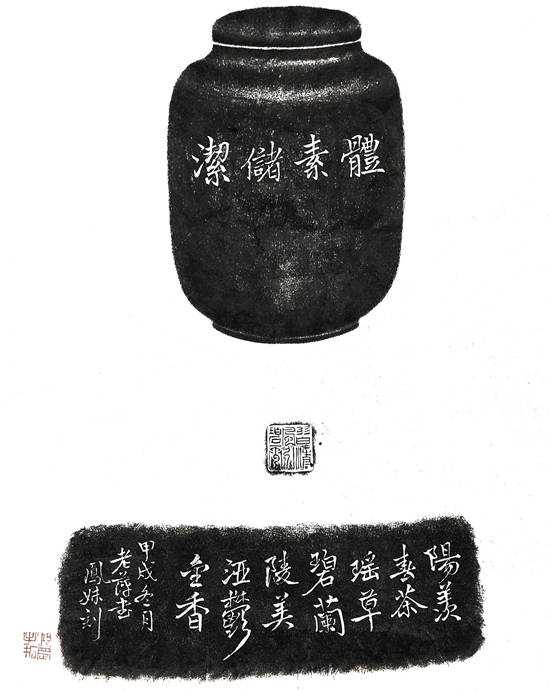 體素儲潔
陽羨
春茶
瑶草
碧蘭
陵美
酒鬱
金香
甲戌冬月
書
鳳妹刻